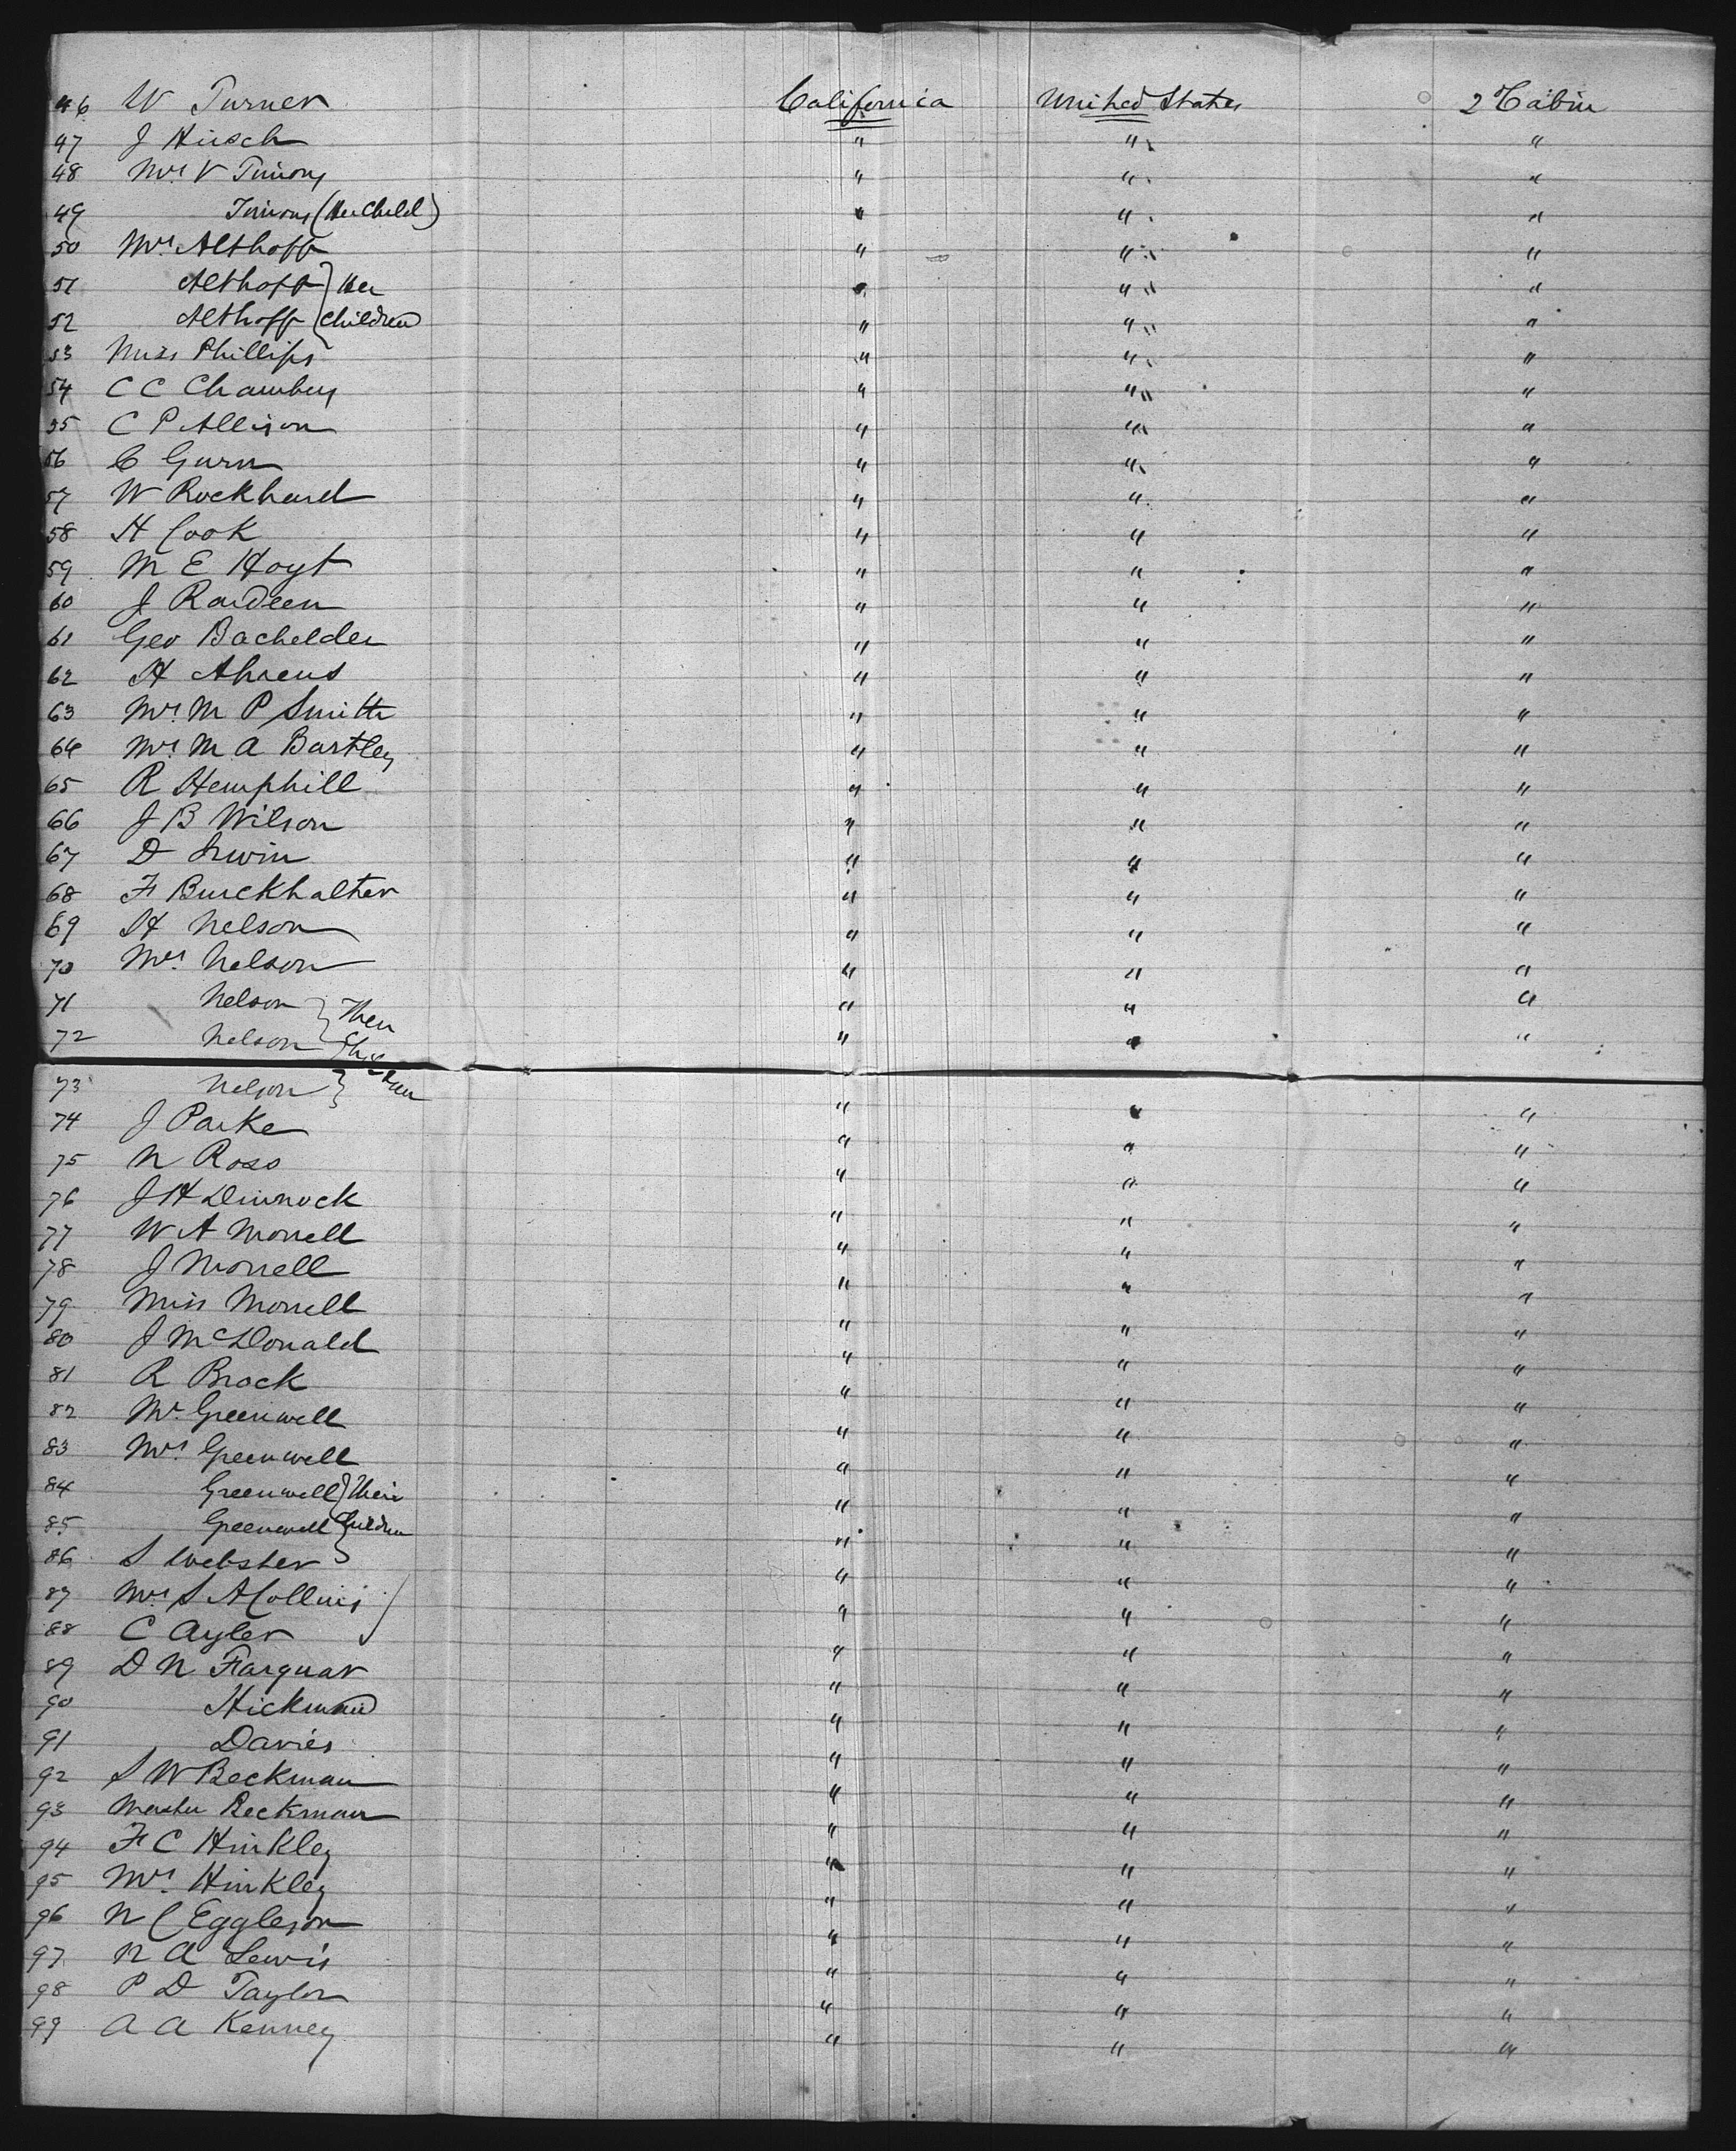 46 W Turner California United States 2 Cabin
47 J Hirsch " " "
48 Mrs V Timony " " "
49 Timony (Her Child) " " "
50 Mrs Althoff " " "
51 Althoff } Her " " "
52 Althoff } Children " " "
53 Miss Phillips " " "
54 C C Chambers " " "
55 C P Allison " " "
56 C Gurn " " "
57 W Rockhard " " "
58 H Cook " " "
59 M E Hoyt " " "
60 J Rardeen " " "
61 Geo Bachelder " " "
62 H Ahrens " " "
63 Mrs M P Smith " " "
64 Mrs M A Bartley " " "
65 R Hemphill " " "
66 J B Wilson " " "
67 D Irwin " " "
68 F Burckhalter " " "
69 H Nelson " " "
70 Mrs Nelson " " "
71 Nelson } Their " " "
72 Nelson } Children " " "
73 Nelson } " " "
74 J Parke " " "
75 N Ross " " "
76 J H Dimnock " " "
77 W A Morrell " " "
78 J Morrell " " "
79 Miss Morrell " " "
80 J McDonald " " "
81 R Brock " " "
82 Mr Greenwell " " "
83 Mrs Greenwell " " "
84 Greenwell } Their " " "
85 Greenwell } Children " " "
86 S Webster " " "
87 Mrs S A Collins " " "
88 C Ayler " " "
89 D N Farquar " " "
90 Hickman " " "
91 Davies " " "
92 S W Beckman " " "
93 Master Beckman " " "
94 F C Hinkley " " "
95 Mrs Hinkley " " "
96 N C Eggleson " " "
97 N A Lewis " " "
98 P D Taylor " " "
99 A A Kenney " " "